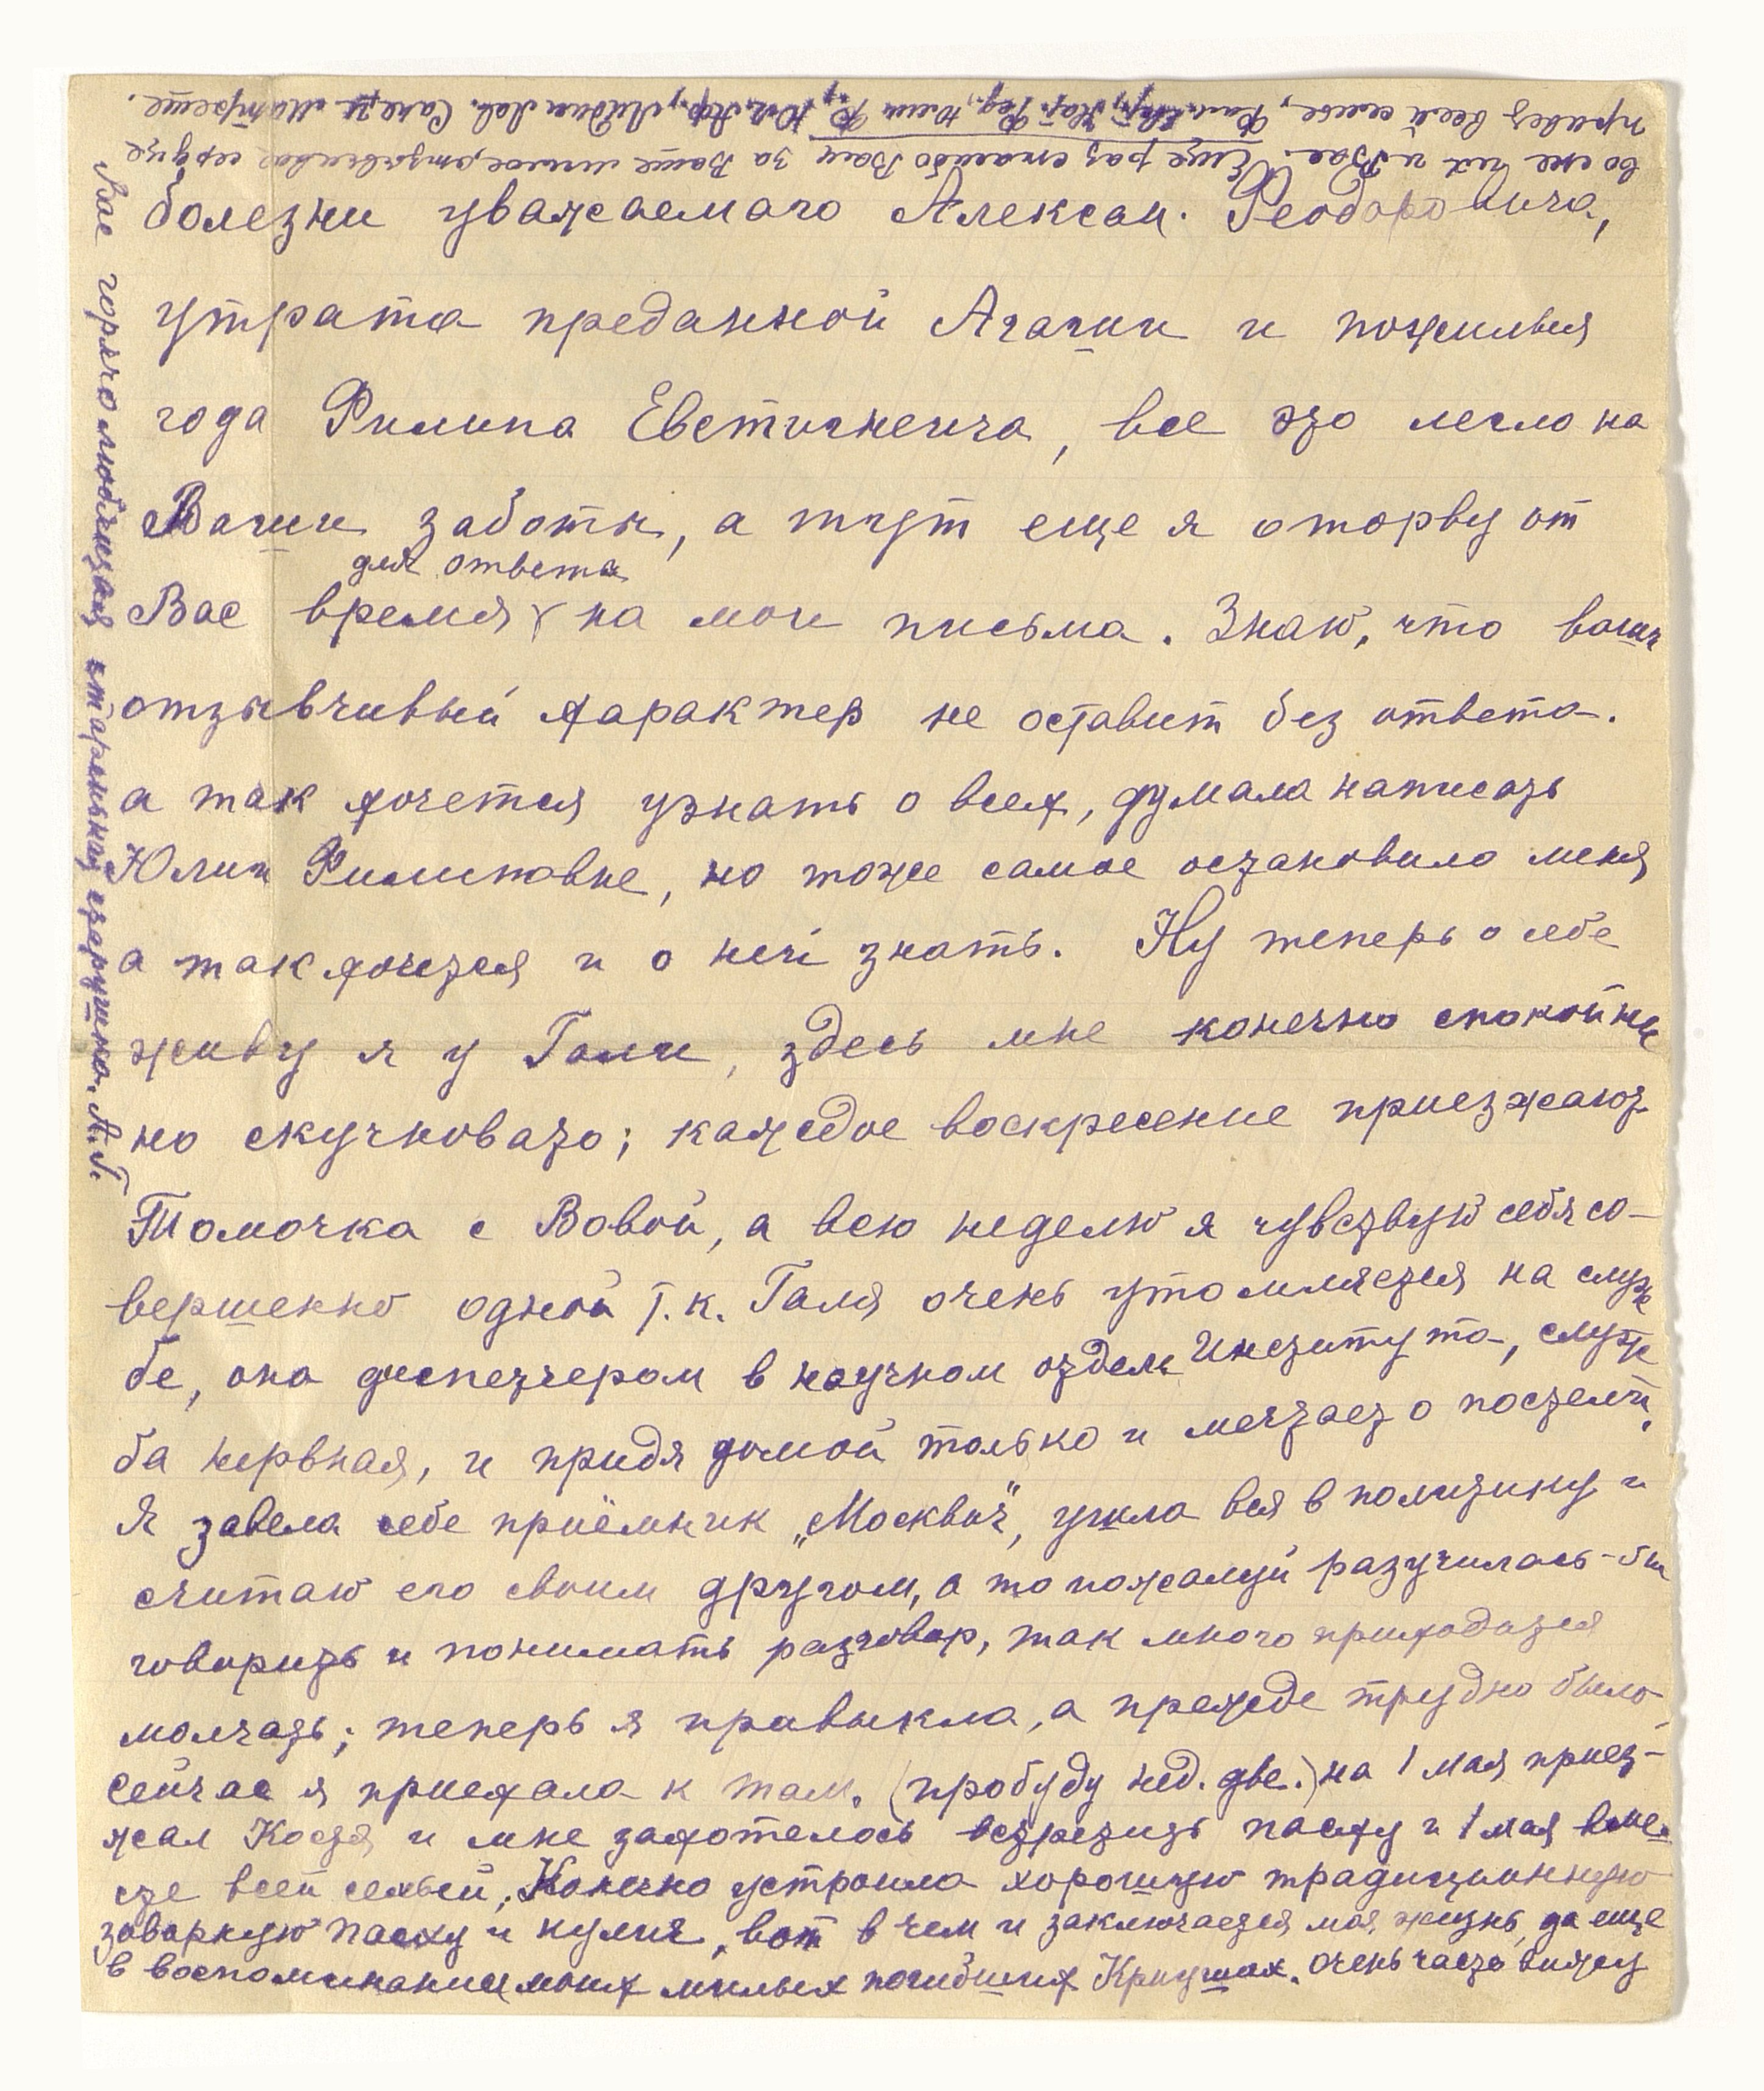 болезни уважаемаго Алексан. Феодоровича,
утрата преданной Агаши и пожилыя
года Филипа Евстигнеича, все это легло на
Ваши заботы, а тут еще я оторву от
для ответа
Вас время на мои письма. Знаю, что ваш
отзывчивый характер не оставит без ответа.
а так хочется узнать о всех, думала написать
Юлии Филиповне, но тоже самое остановило меня
а так хочется и о ней знать. Ну теперь о себе
живу я у Гали, здесь мне конечно спокойно
но скучновато; каждое воскресение приезжают
Томочка с Вовой, а всю неделю я чувствую себя со-
вершенно одной т.к. Галя очень утомляется на служ
бе, она диспетчером в научном отделе Института, служ
ба нервная, и придя домой только и мечтает о постели,
Я завела себе приёмник „Москвич“, ушла вся в политику и
считаю его своим другом, а то пожалуй разучилась-бы
говорить и понимать разговор, так много приходится
молчать; теперь я привыкла, а прежде трудно было,
сейчас я приехала к Там. (пробуду нед. две.) на 1 мая приез-
жал Костя и мне захотелось встретить пасху и 1 мая вме-
сте всей семьей. Конечно устроила хорошую традиционную
заварную пасху и кулич, вот в чем и заключается моя жизнь, да еще
в воспоминании моих милых погибших Криушах. Очень часто вижу
во сне их и Вас. Еще раз спасибо Вам за Ваше милое, отзывчивое сердце
привет всей семье, Юл. Лидии Пав. Саше и Матреше.
Вас горячо любящая старенькая старушка. А. Г.